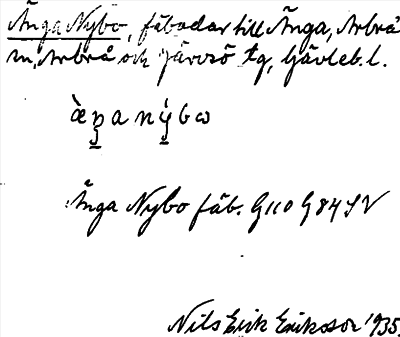 Änga Nybo, fäbodar till Änga, Arbrå
sn, Arbrå och Järvsö tg, Gävleb. l.
Änga Nybo fäb. G110 G84 SV
Nils Erik Eriksson 1935.